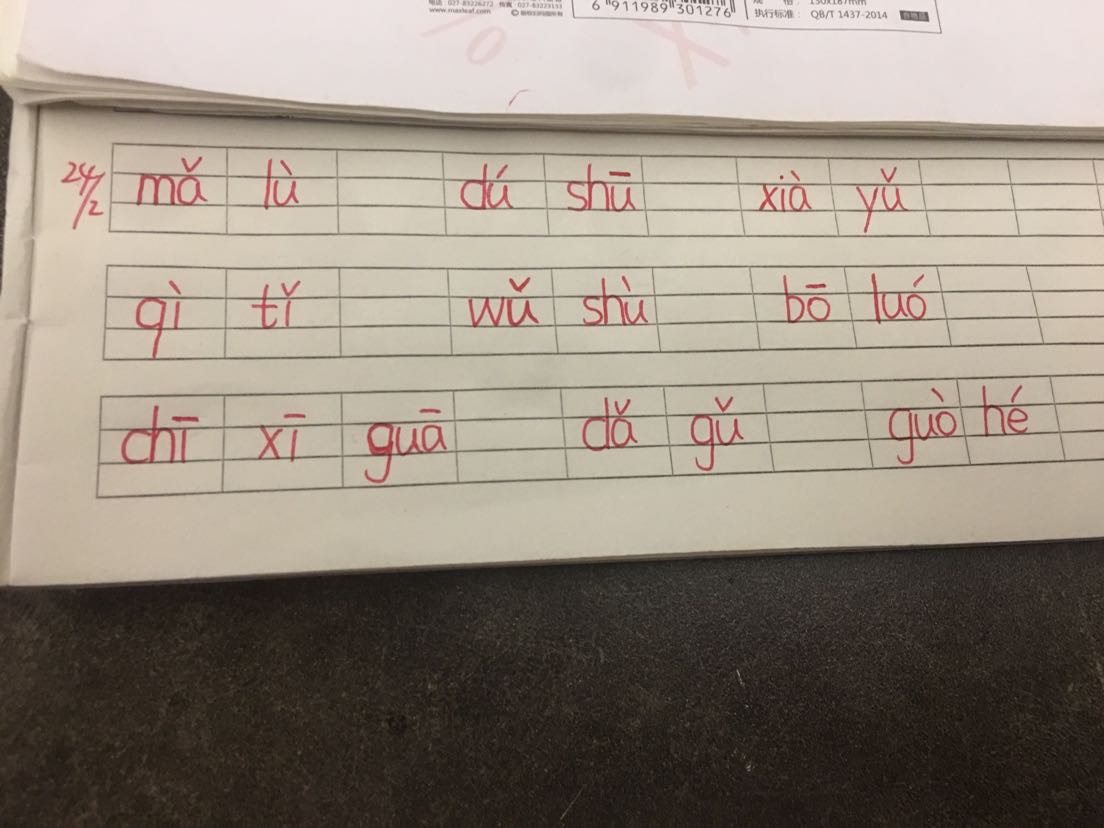 电话:027-83226272 传真:027-83223133
www.maxleaf.com © 版权所有翻版必究
6 911989 301276
规 格: 130x187mm
执行标准: QB/T 1437-2014
24/2 mǎ lù dú shū xià yǔ
qì tǐ wǔ shù bō luó
chī xī guā dǎ gǔ guò hé